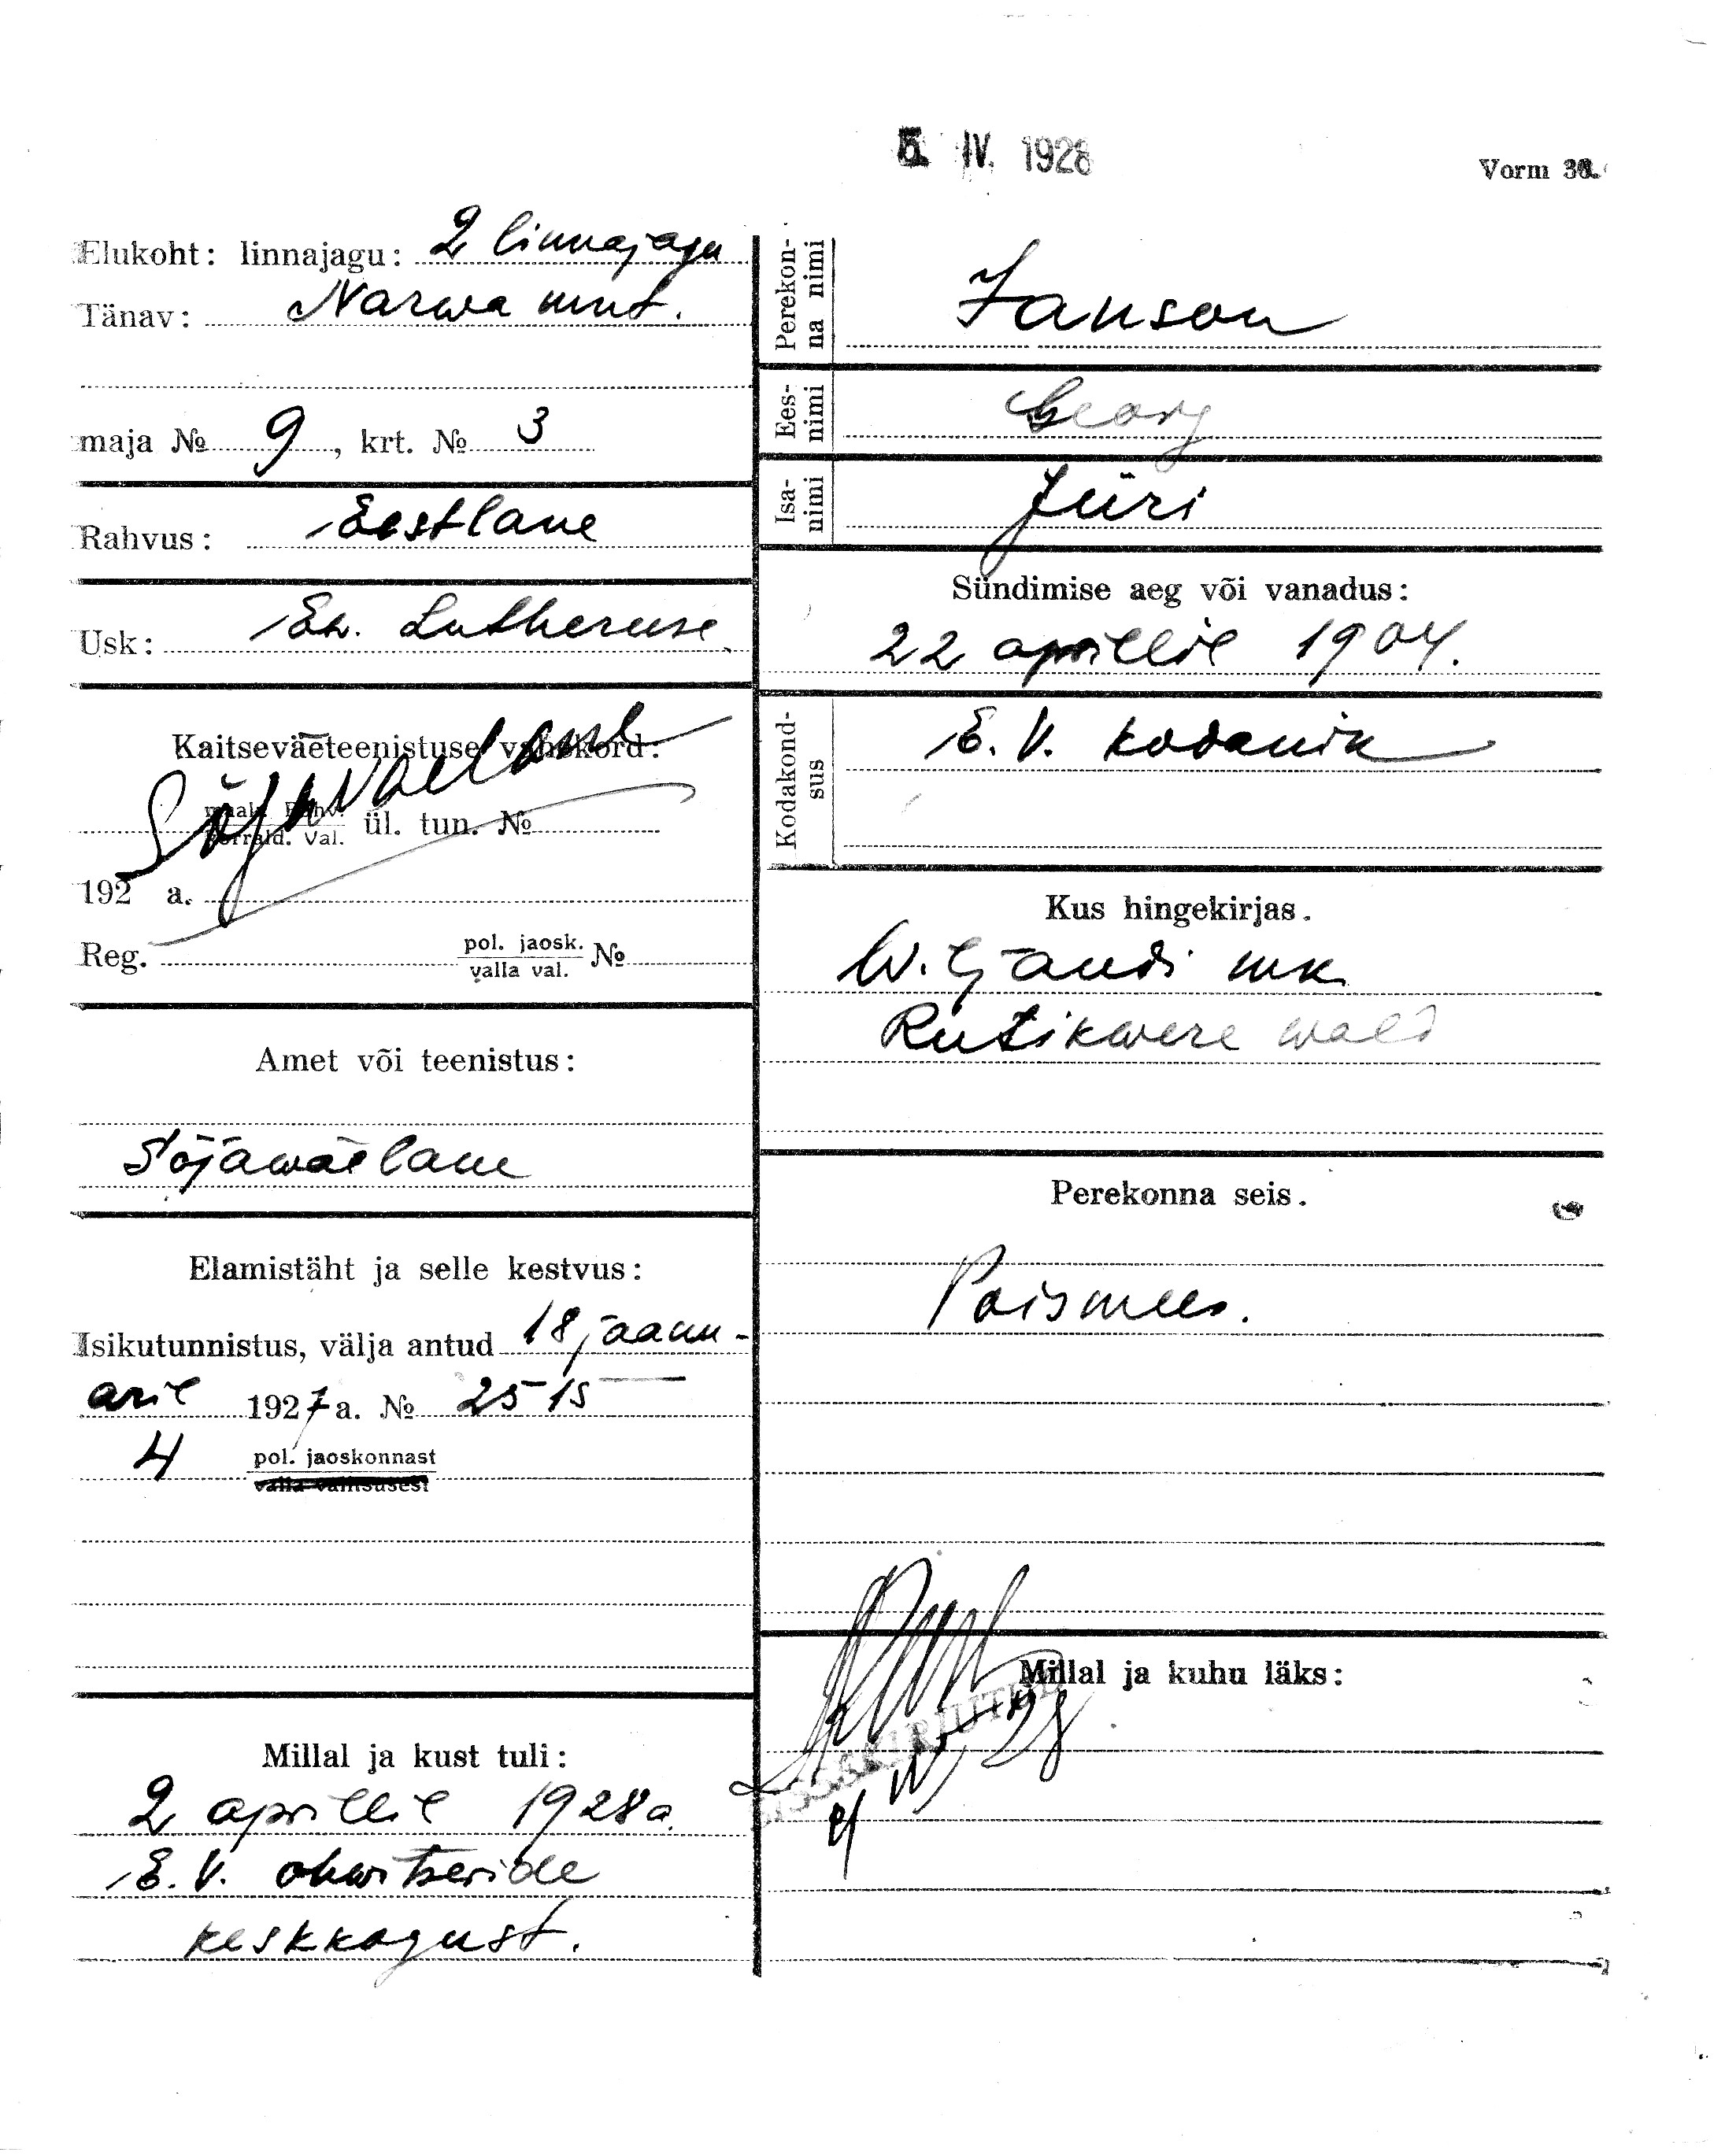 5. IV. 1928
Vorm
Elukoht: linnajagu: 2 linnajagu
Tänav: Narwa mnt.
maja № 9, krt. № 3
Rahvus: Eestlane
Usk: Ew. Lutheruse
Kaitseväeteenistuse vahekord:
Sõjaväelane
ül. tun. №
192 a.
Reg. pol. jaosk. №
valla val.
Amet või teenistus:
Sõjawäelane
Elamistäht ja selle kestvus:
Isikutunnistus, välja antud 18 jaanu-
aril 1927 a. № 2515
4 pol. jaoskonnast
valla valitsusest
Millal ja kust tuli:
2 aprillil 1928 a.
E. V. ohwitseride
keskkogust.
Perekon-
na nimi
Janson
Ees-
nimi
Georg
Isa-
nimi
Jüri
Sündimise aeg või vanadus:
22 aprillil 1904.
Kodakond-
sus
E. V. kodanik
Kus hingekirjas.
W. ljandi mk.
Rutikwere wald
Perekonna seis.
Poismees.
Millal ja kuhu läks:
SISSEKIRJUTUD
IV 28